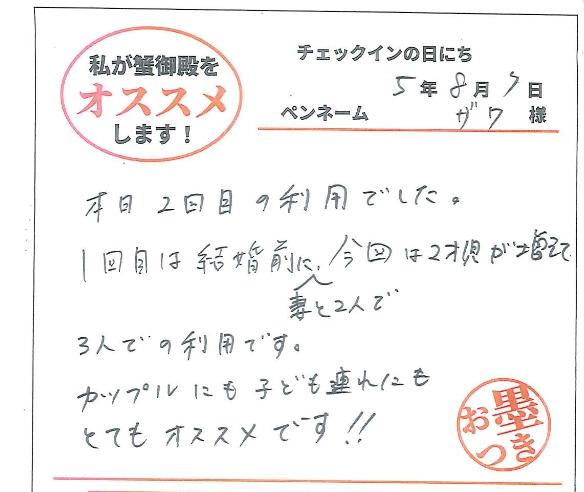 私が蟹御殿を
オススメ
します!
チェックインの日にち
5年8月7日
ペンネーム ザワ 様
本日2回目の利用でした。
1回目は結婚前に、今回は2才児が増えて
妻と2人で
3人での利用です。
カップルにも子ども連れにも
とてもオススメです!!
お墨つき